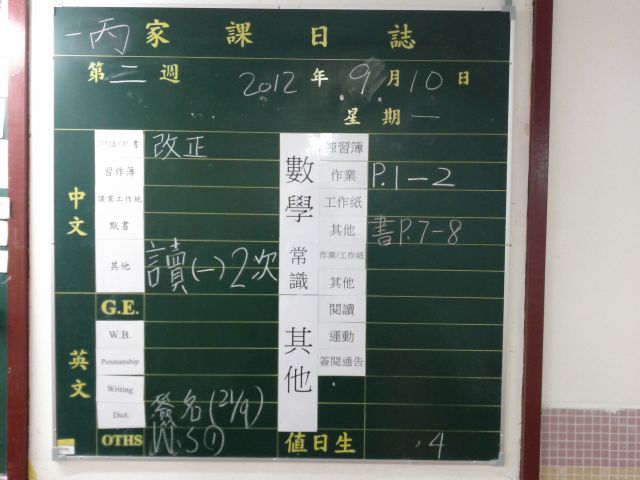 一丙 家課日誌
第二週 2012年9月10日
星期一
中文
改正
習作簿
課業工作紙
默書
其他 讀(一)2次
英文
G.E.
W.B.
Penmanship
Writing
Dict. 簽名(21/9)
OTHS W.S①
數學
練習簿
作業 P.1-2
工作紙
其他 書P.7-8
常識
作業/工作紙
其他
其他
閱讀
運動
簽閱通告
值日生 4